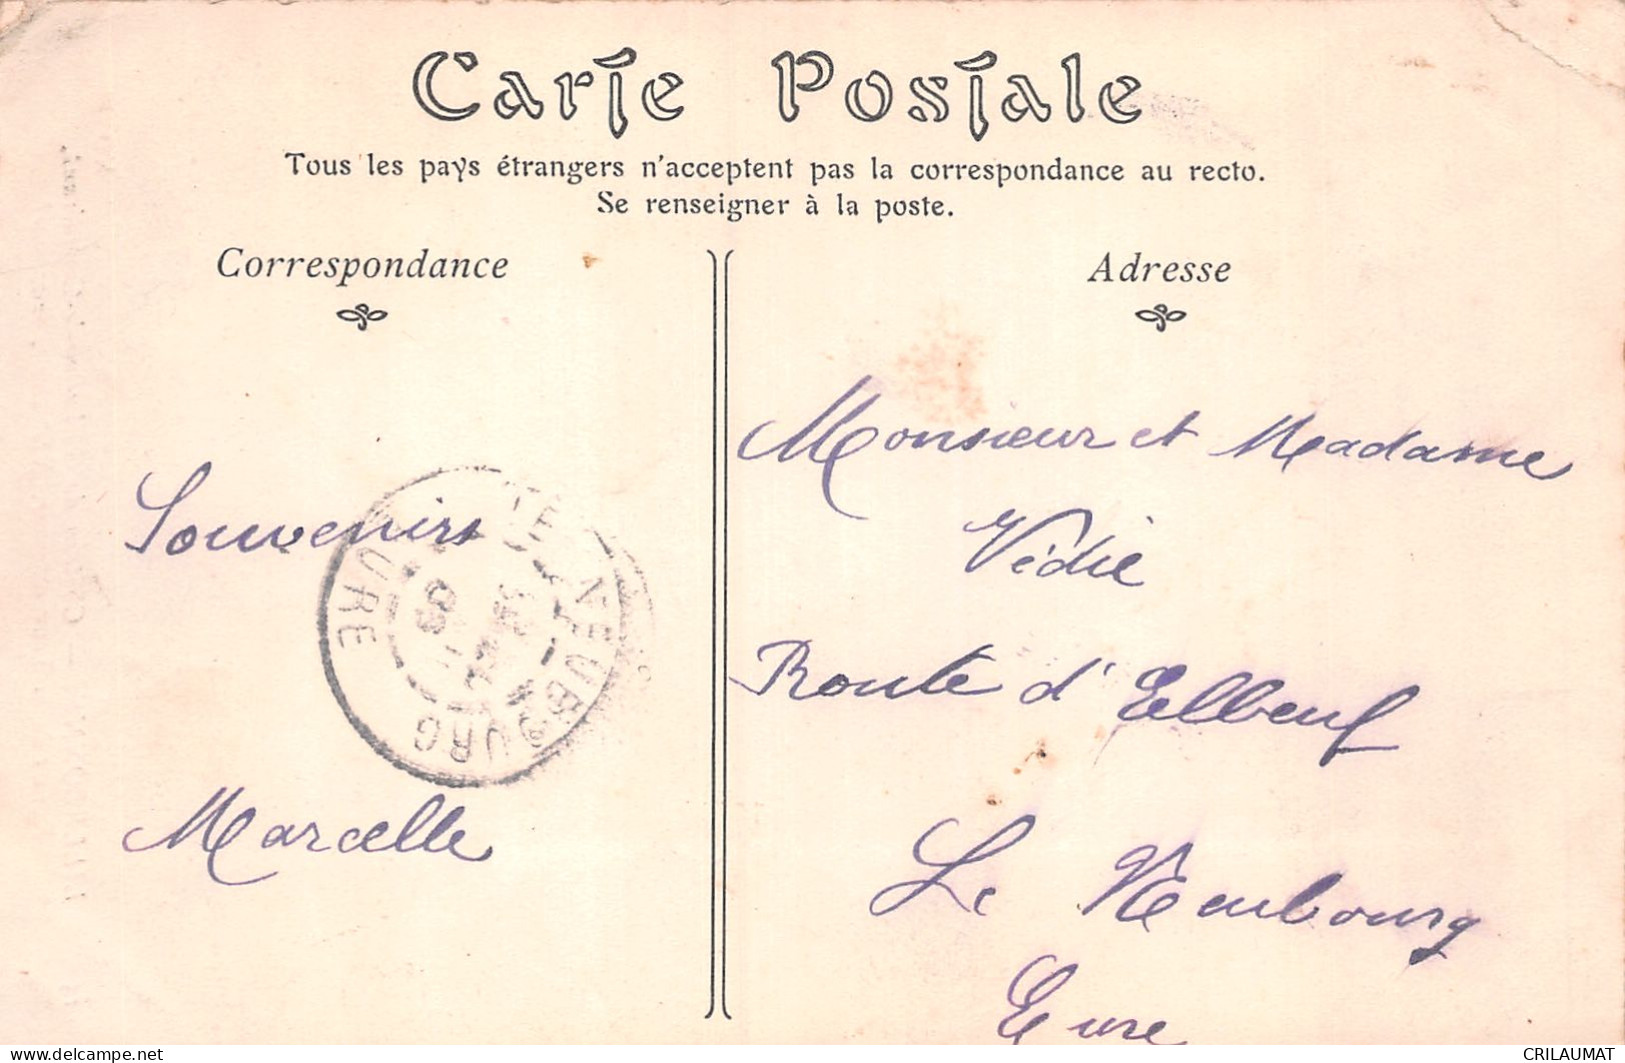 Carte Postale
Tous les pays étrangers n'acceptent pas la correspondance au recto.
Se renseigner à la poste.
Correspondance
Souvenirs
Marcelle
LE NEUBOURG
EURE
Adresse
Monsieur et Madame
Védie
Route d'Elbeuf
Le Neubourg
Eure
delcampe.net
CRILAUMAT